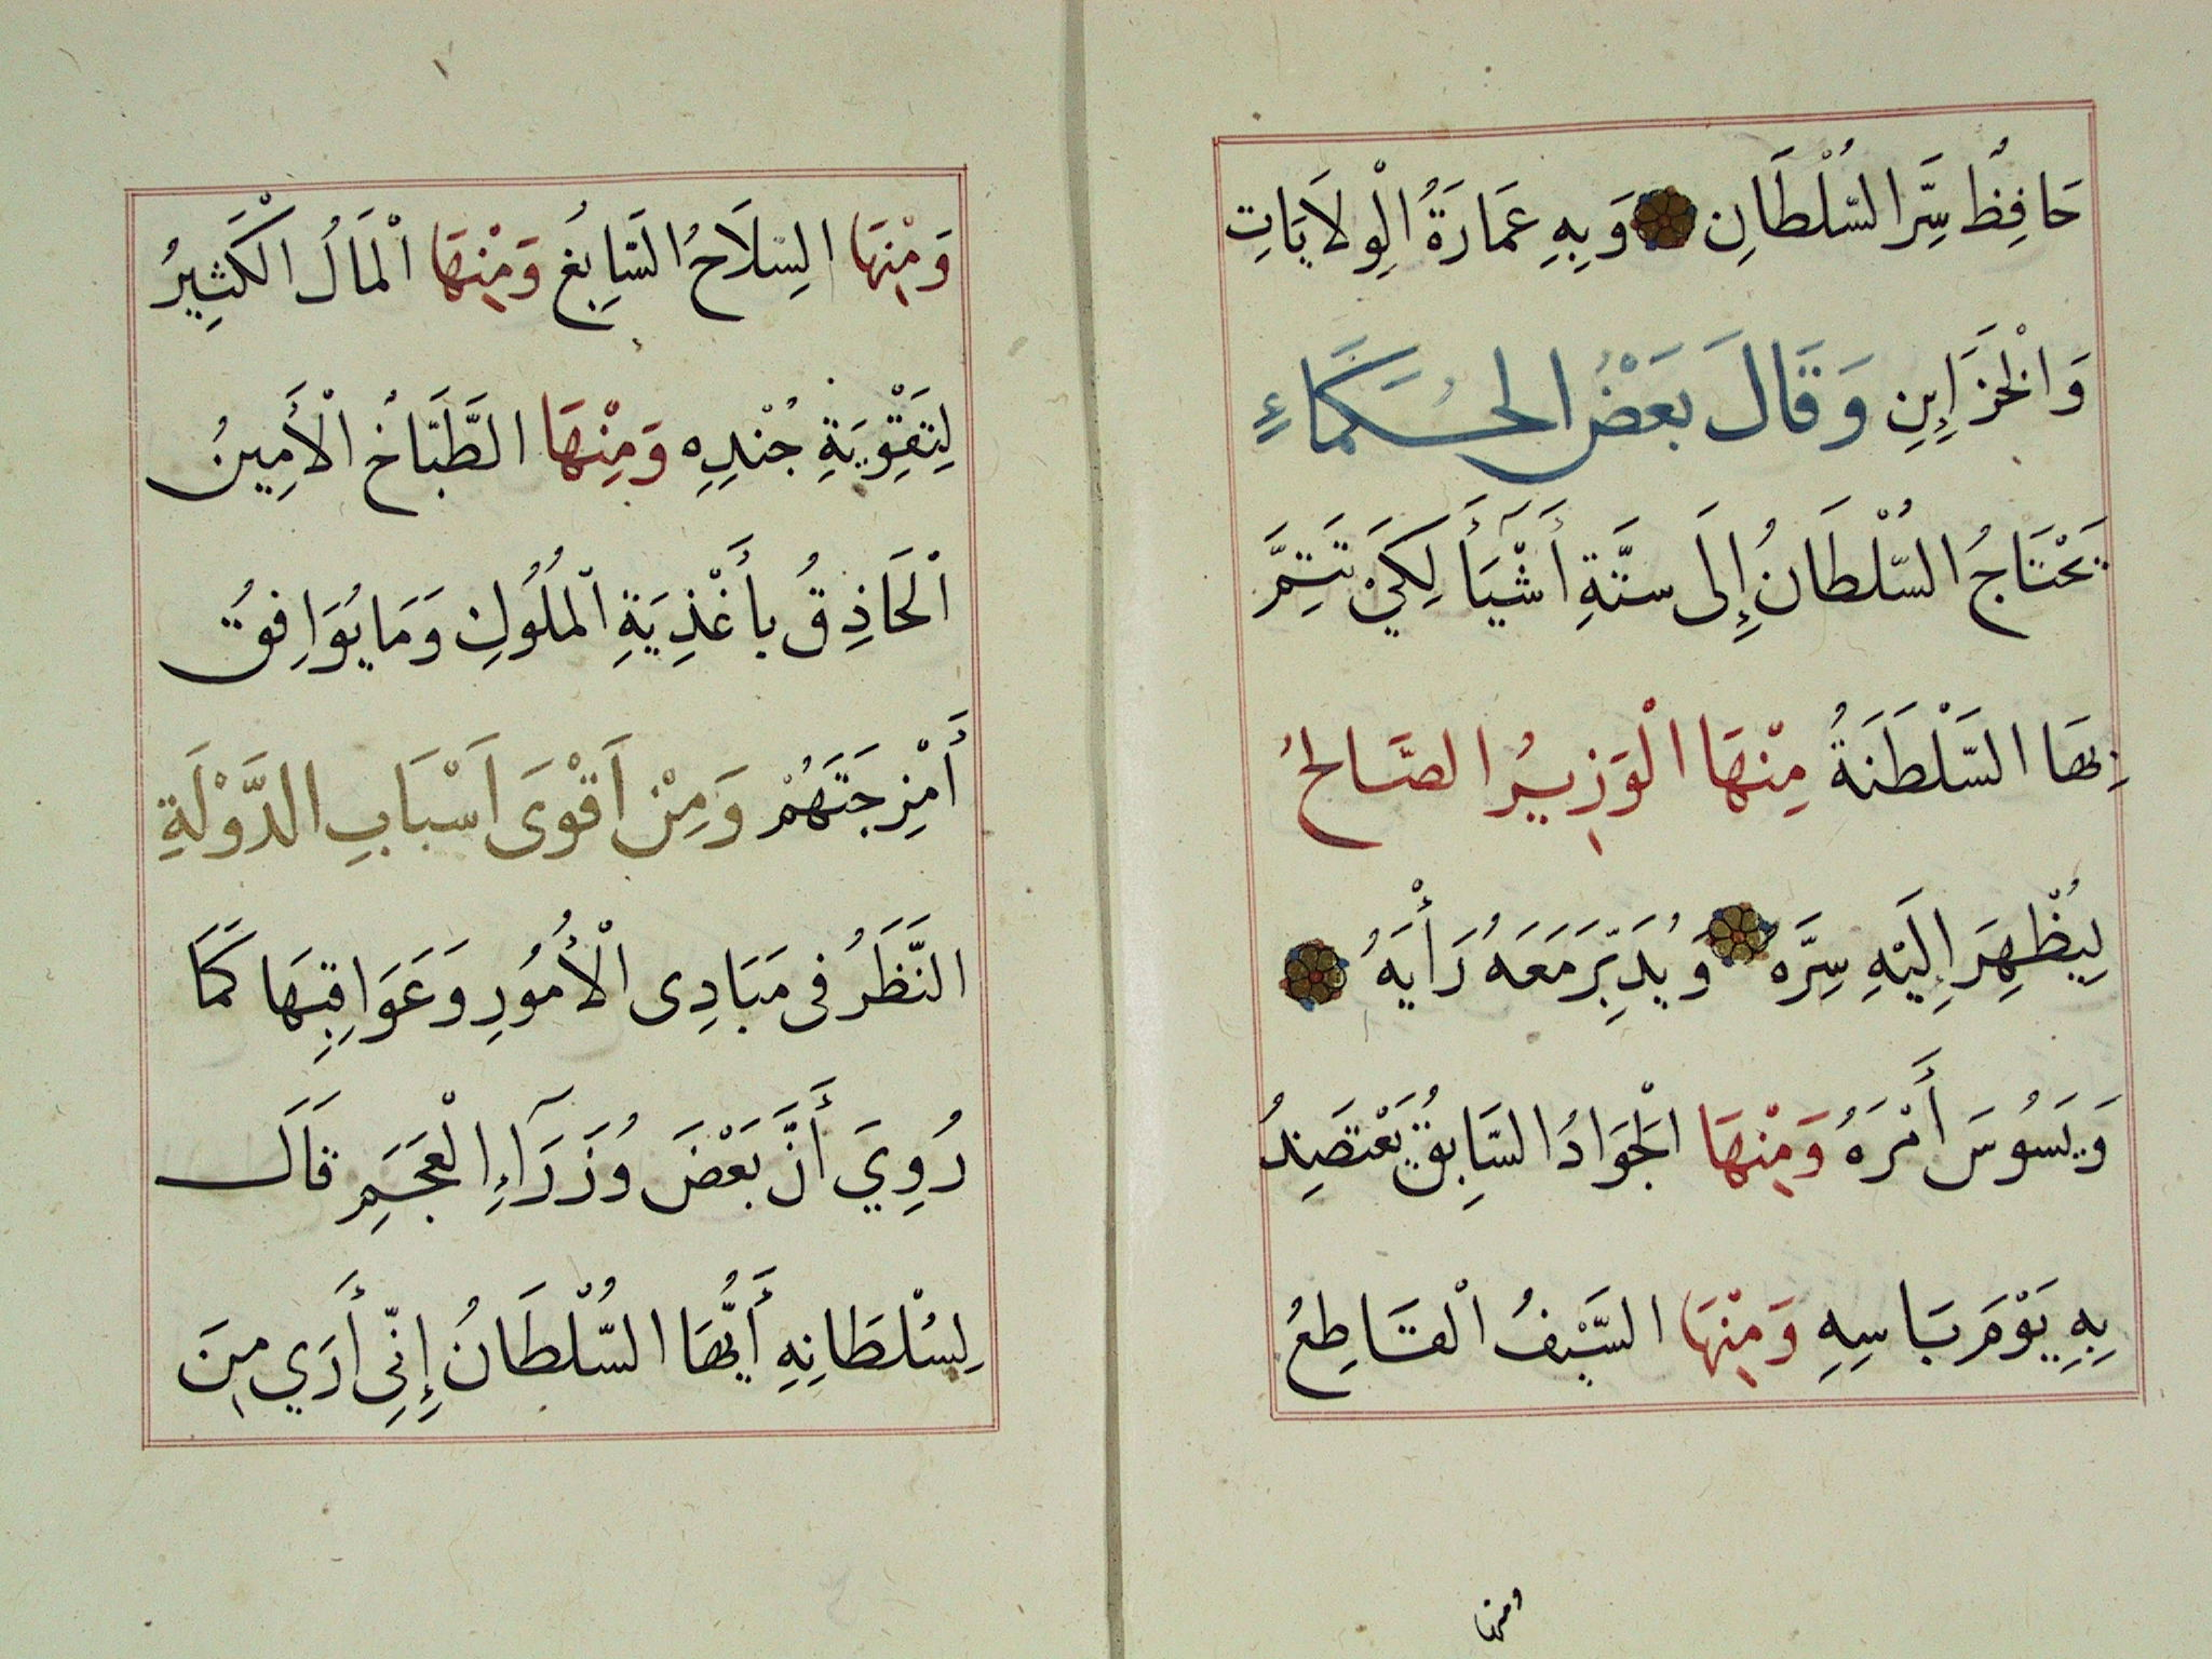 حَافِظُ سِرَّ السُّلْطَانِ وَبِهِ عَمَارَةُ الْوِلَايَاتِ
وَالْخَزَايِنِ وَقَالَ بَعْضُ الْحُكَمَاءِ
يَحْتَاجُ السُّلْطَانُ إِلَى سِتَّةِ أَشْيَآءَ لِكَيْ تَتِمَّ
بِهَا السَّلْطَنَةُ مِنْهَا الْوَزِيرُ الصَّالِحُ
لِيُظْهِرَ إِلَيْهِ سِرَّه وَيُدَبِّرَ مَعَهُ رَأْيَهُ
وَيَسُوسَ أَمْرَهُ وَمِنْهَا الْجَوَادُ السَّابِقُ يَعْتَضِدُ
بِهِ يَوْمَ بَاسِهِ وَمِنْهَا السَّيْفُ الْقَاطِعُ
ومنها
وَمِنْهَا السِّلَاحُ السَّابِغُ وَمِنْهَا الْمَالُ الْكَثِيرُ
لِتَقْوِيَةِ جُنْدِهِ وَمِنْهَا الطَّبَّاخُ الْأَمِينُ
الْحَاذِقُ بِأَغْذِيَةِ الْمُلُوكِ وَمَا يُوَافِقُ
أَمْزِجَتَهُمْ وَمِنْ اَقْوَى اَسْبَابِ الدَّوْلَةِ
النَّظَرُ فِى مَبَادِى الْأُمُورِ وَعَوَاقِبِهَا كَمَا
رُوِيَ أَنَّ بَعْضَ وُزَرَآءِ الْعَجَمِ قَالَ
لِسُلْطَانِهِ أَيُّهَا السُّلْطَانُ إِنِّى أَرَي مِنَ